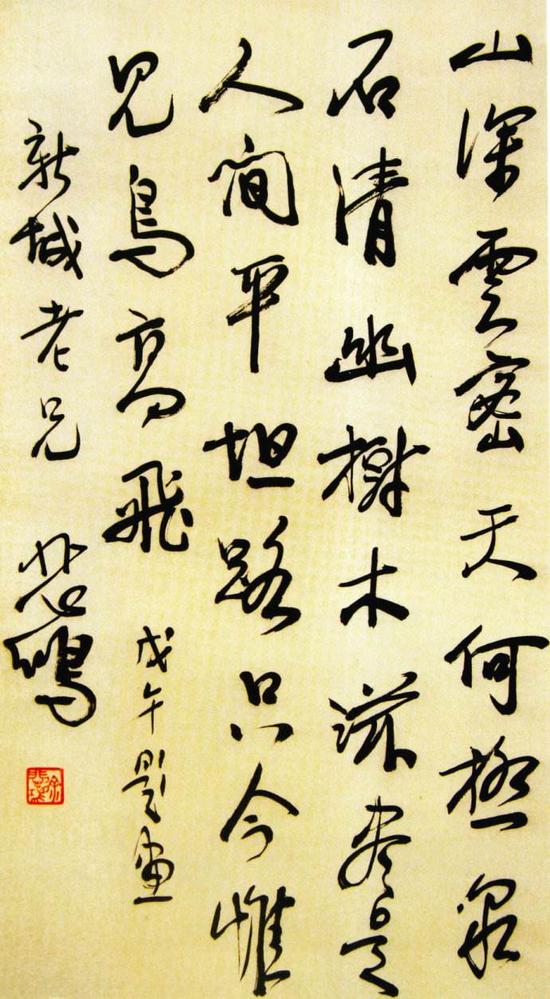 山深雲密天何極泉
石清幽樹木滋盡是
人間平坦路只今惟
見鳥高飛
戊午題畫
新城老兄
悲鴻